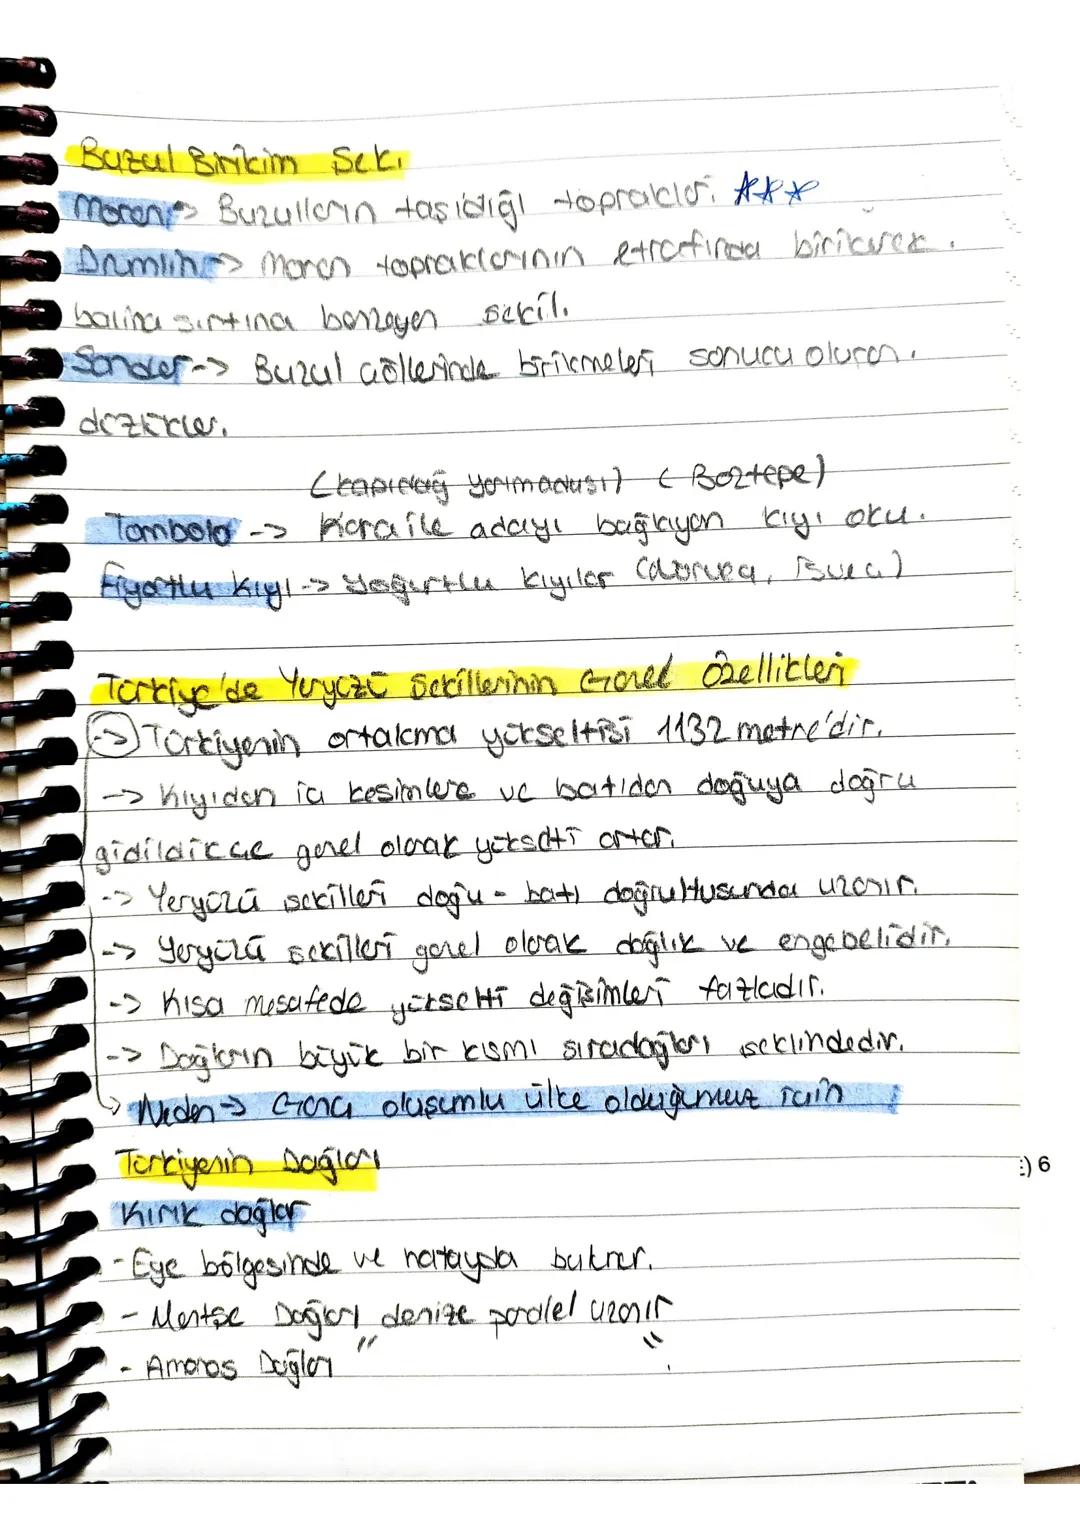 Buzul Birikim Şekı
Moren -> Buzulların taşıdığı topraklar. ***
Drumlin -> Moren topraklarının etrafında birikerek.
balina sırtına benzeyen şekil.
Sander --> Buzul göllerinde birikmeleri sonucu oluşan.
düzlükler.
(Kapıdağ yarımadası) (Boztepe)
Tombolo --> Kara ile adayı bağlayan kıyı oku.
Fiyortlu Kıyı --> Yoğurtlu kıyılar (
Türkiye'de Yeryüzü Şekillerinin Genel Özellikleri
-> Türkiyenin ortalama yükseltisi 1132 metre'dir.
--> Kıyıdan iç kesimlere ve batıdan doğuya doğru
gidildikçe genel olarak yükselti artar.
--> Yeryüzü şekilleri doğu - batı doğrultusunda uzanır.
--> Yeryüzü şekilleri genel olarak dağlık ve engebelidir.
--> Kısa mesafede yükselti değişimleri fazladır.
--> Dağların büyük bir kısmı sıradağları şeklindedir.
Neden -> Genç oluşumlu ülke olduğumuz için
Türkiyenin Dağları
:) 6
Kırık dağlar
- Ege bölgesinde ve hatayda bulunur.
- Menteşe Dağları denize paralel uzanır
- Amanos Dağları " "